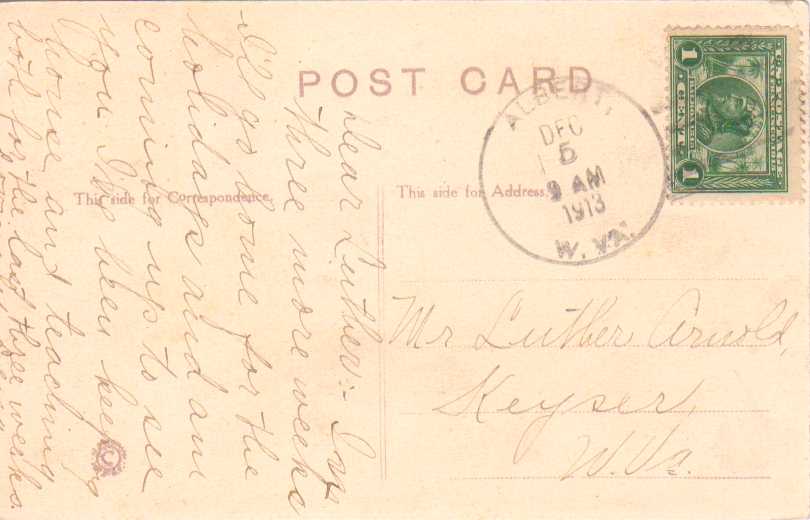 POST CARD
This side for Correspondence.
This side for Address.
ALBERT,
DEC
5
9 AM
1913
W. VA.
U.S. POSTAGE
1 CENT 1
Dear Luther:- In
three more weeks
I'll go home for the
holidays and am
coming up to see
you I've been keeping
house and teaching
both for the last three weeks.
Mr Luther Arnold,
Keyser,
W. Va.